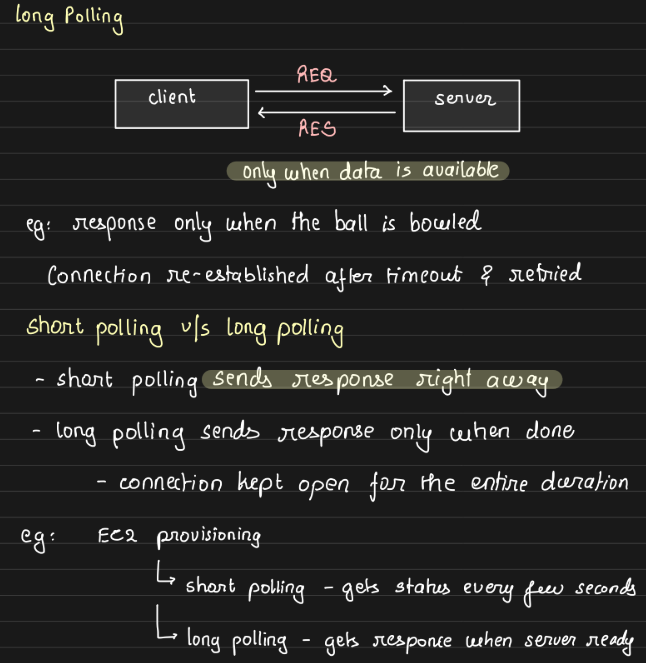 long Polling
REQ
client
server
RES
only when data is available
eg: response only when the ball is bowled
Connection re-established after timeout & retried
short polling v/s long polling
- short polling sends response right away
- long polling sends response only when done
- connection kept open for the entire duration
eg: EC2 provisioning
short polling - gets status every few seconds
long polling - gets responce when server ready